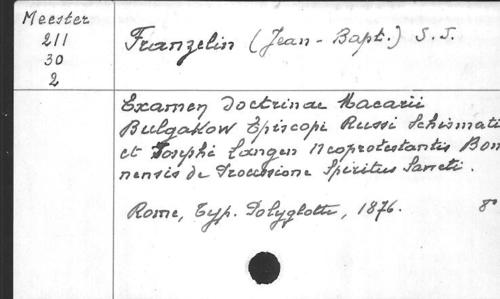 Meester
211
30
2
Franzelin (Jean-Bapt.) S.J.
Examen doctrinae Macarii
Bulgakow Episcopi Russi Schismati
et Josephi Langen neoprotestantis Bon
nensis de Processione Spiritus Sancti.
Rome, Typ. Polyglotte, 1876. 8°